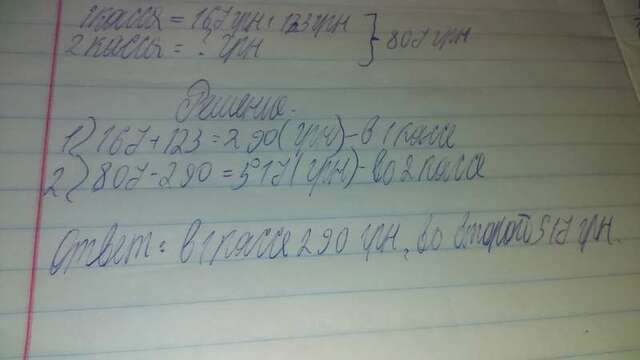 1 касса = 167 грн + 123 грн } 807 грн
2 кассы = ? грн
Решение.
1) 167 + 123 = 290 (грн) - в 1 кассе
2) 807 - 290 = 517 (грн) - во 2 кассе
Ответ: в 1 кассе 290 грн, во второй 517 грн.